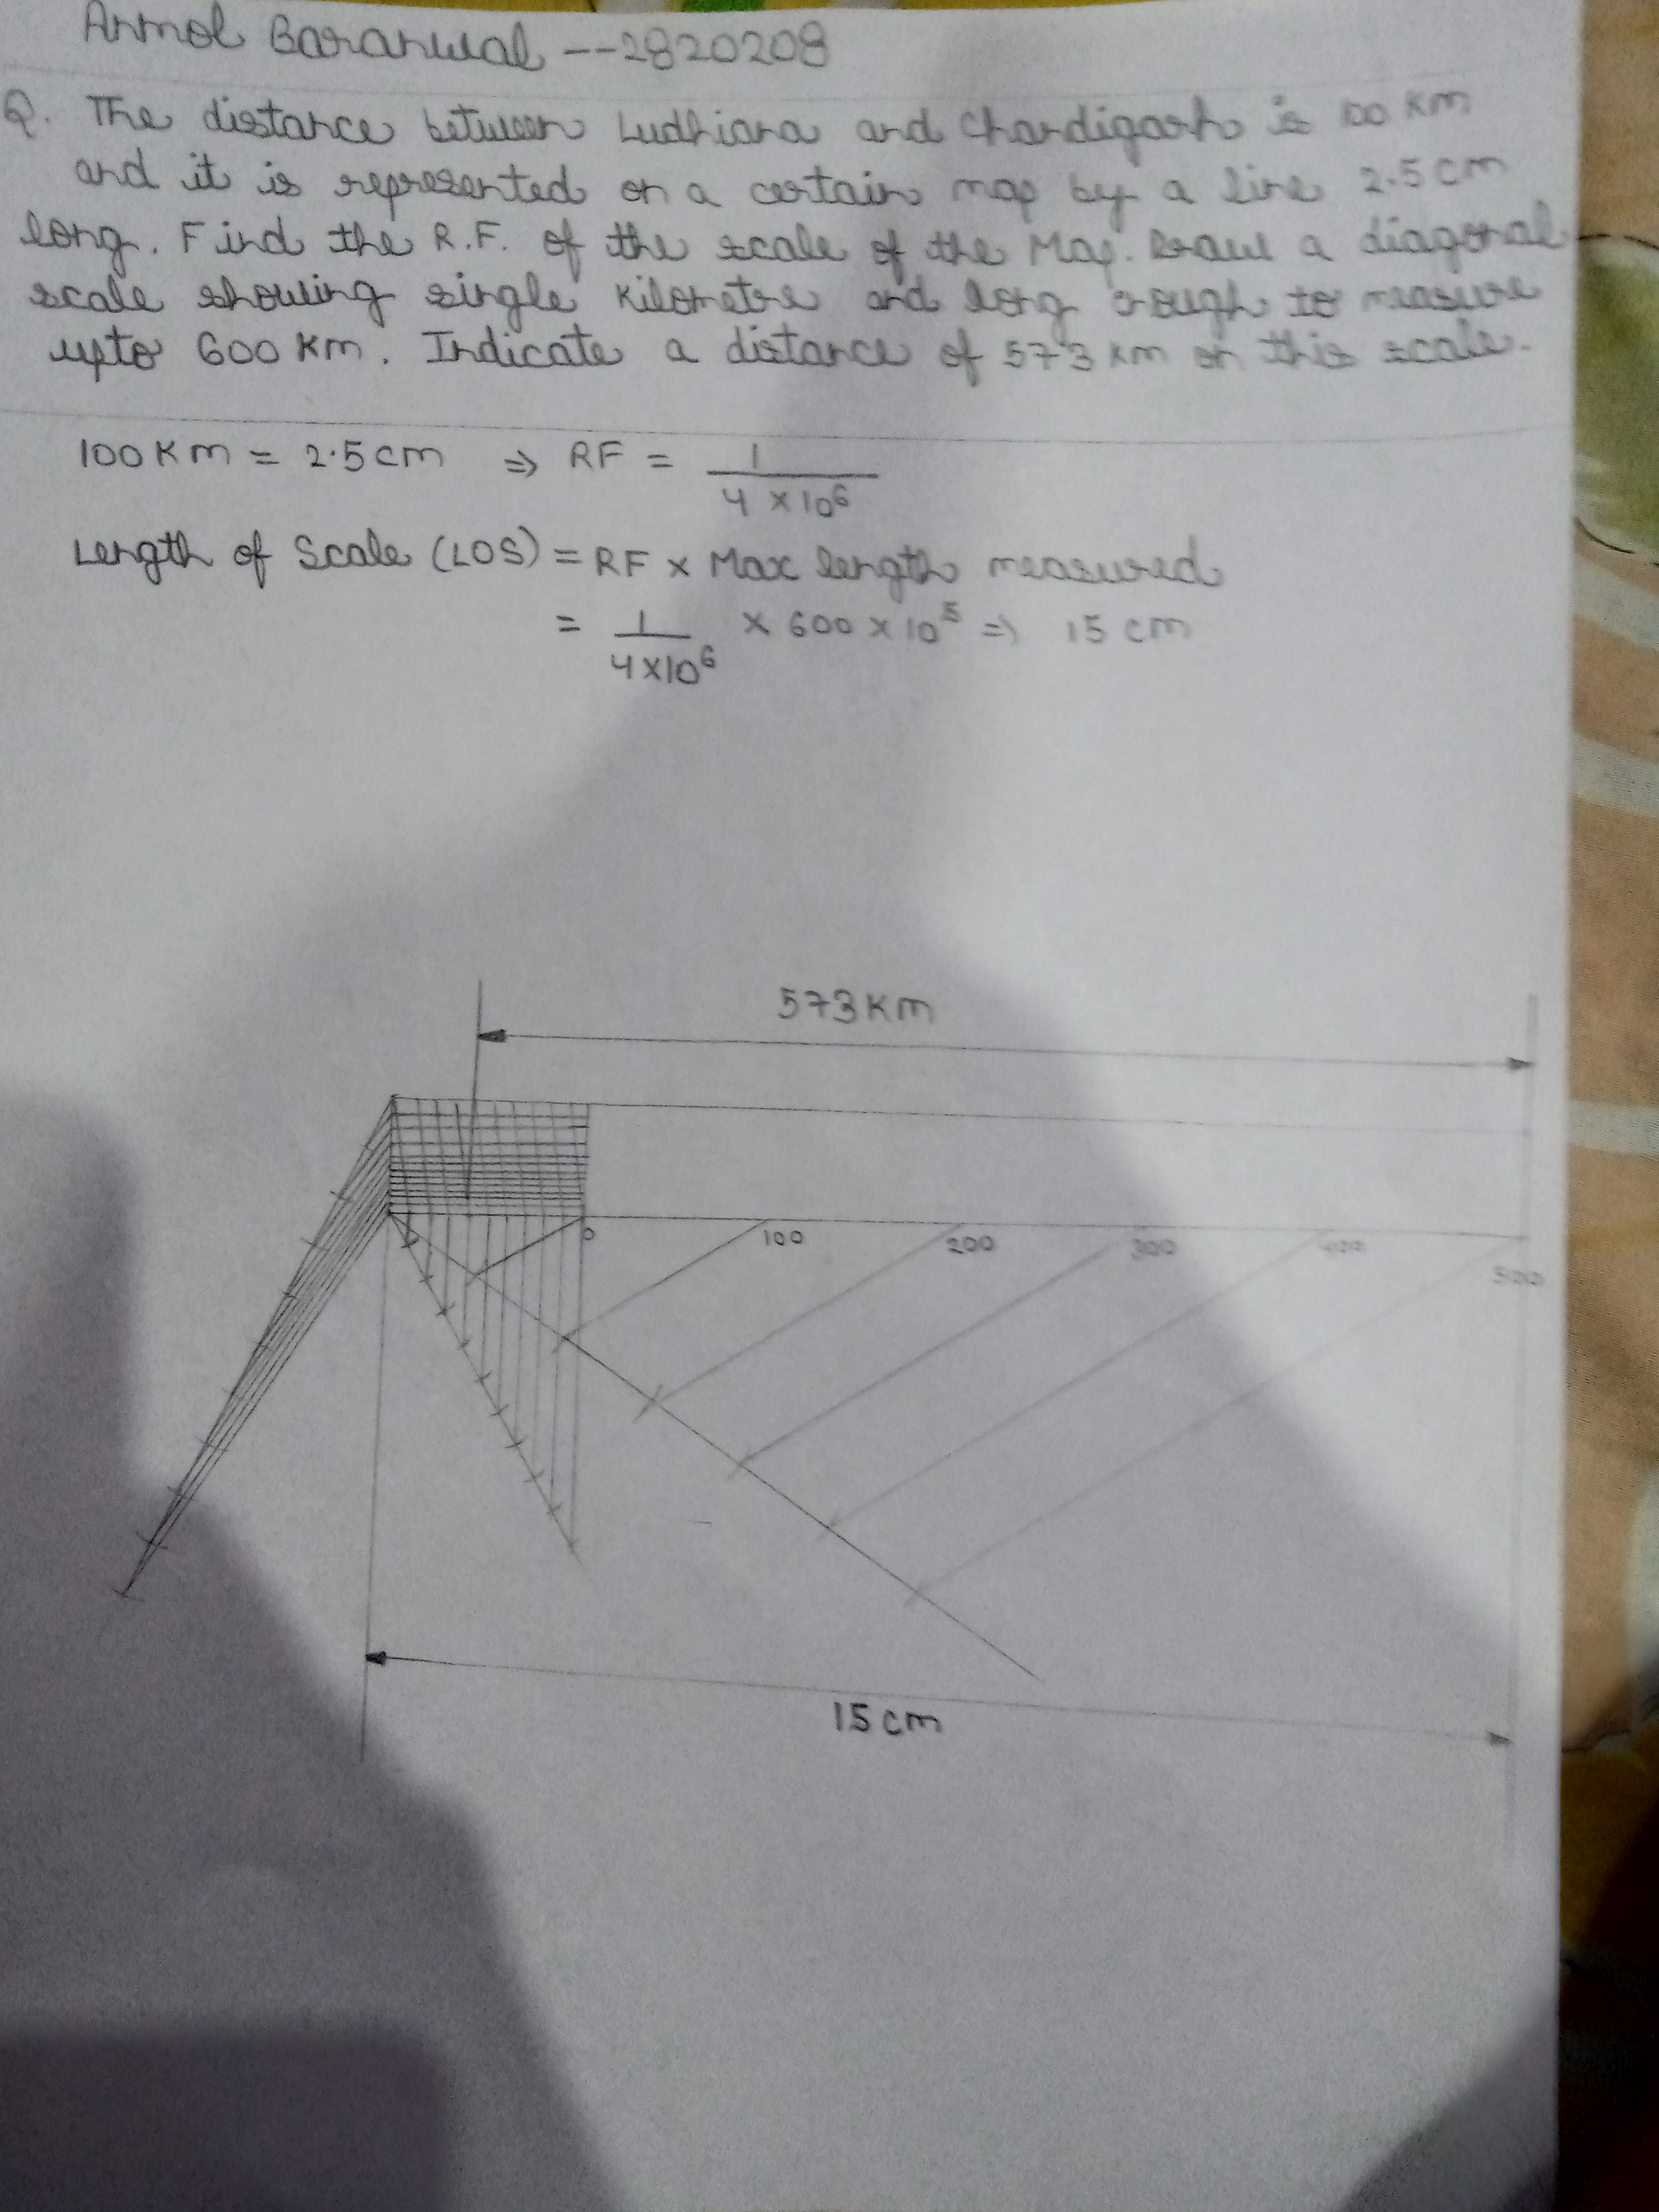 Anmol Baranwal --2820208
Q. The distance between Ludhiana and Chandigarh is 100 Km
and it is represented on a certain map by a line 2.5 cm
long. Find the R.F. of the scale of the Map. Draw a diagonal
scale showing single Kilometre and long enough to measure
upto 600 Km. Indicate a distance of 573 km on this scale.
100 Km = 2.5 cm ⇒ RF = 1/4 × 10⁶
Length of Scale (LOS) = RF × Max length measured
= 1/4×10⁶ × 600 × 10⁵ ⇒ 15 cm
573 Km
0 100 200 300 400 500
15 cm